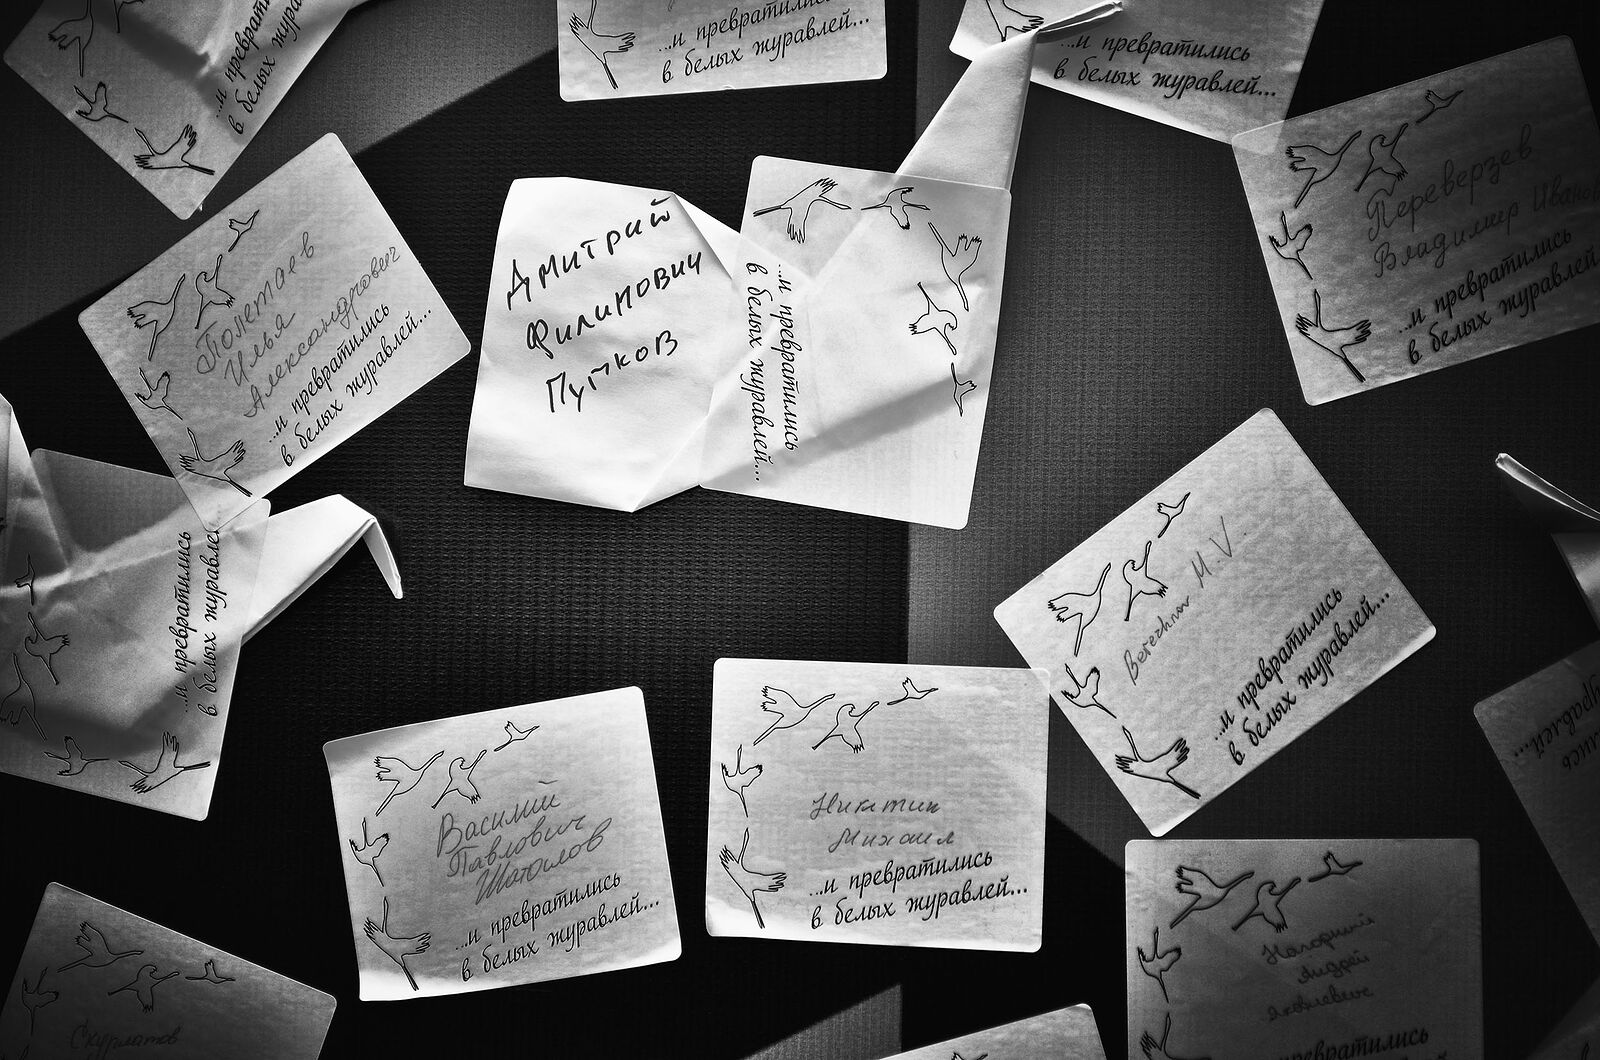 ...и превратились
в белых журавлей...
...и превратились
в белых журавлей...
...и превратились
в белых журавлей...
Переверзев
Владимир
...и превратились
в белых журавлей...
Полетаев
Илья
Александрович
...и превратились
в белых журавлей...
Дмитрий
Филиппович
...и превратились
в белых журавлей...
...и превратились
в белых
M. V.
...и превратились
в белых журавлей...
Василий
Павлович
...и превратились
в белых журавлей...
Никитин
Михаил
...и превратились
в белых журавлей...
Андрей
Яковлевич
превратились
Скурлатов